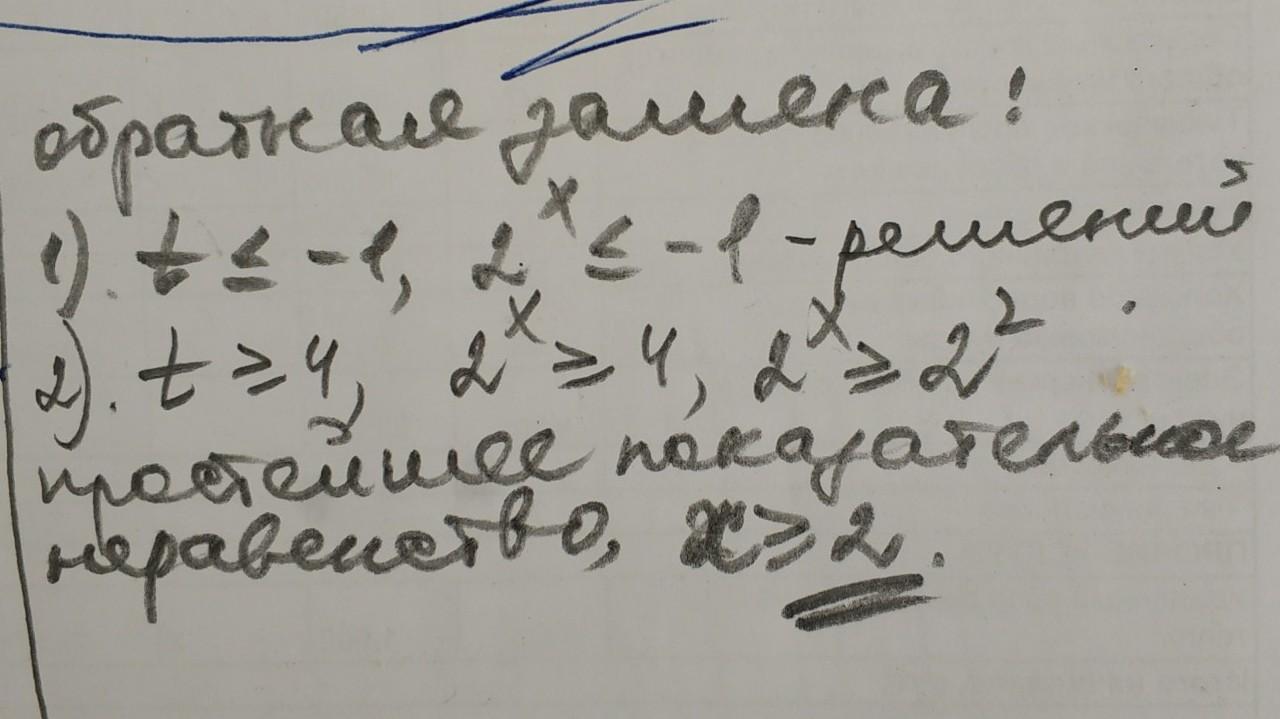 обратная замена!
1). t ≤ -1, 2^x ≤ -1 - решений
2). t ≥ 4, 2^x ≥ 4, 2^x ≥ 2^2.
простейшее показательное
неравенство, x ≥ 2.